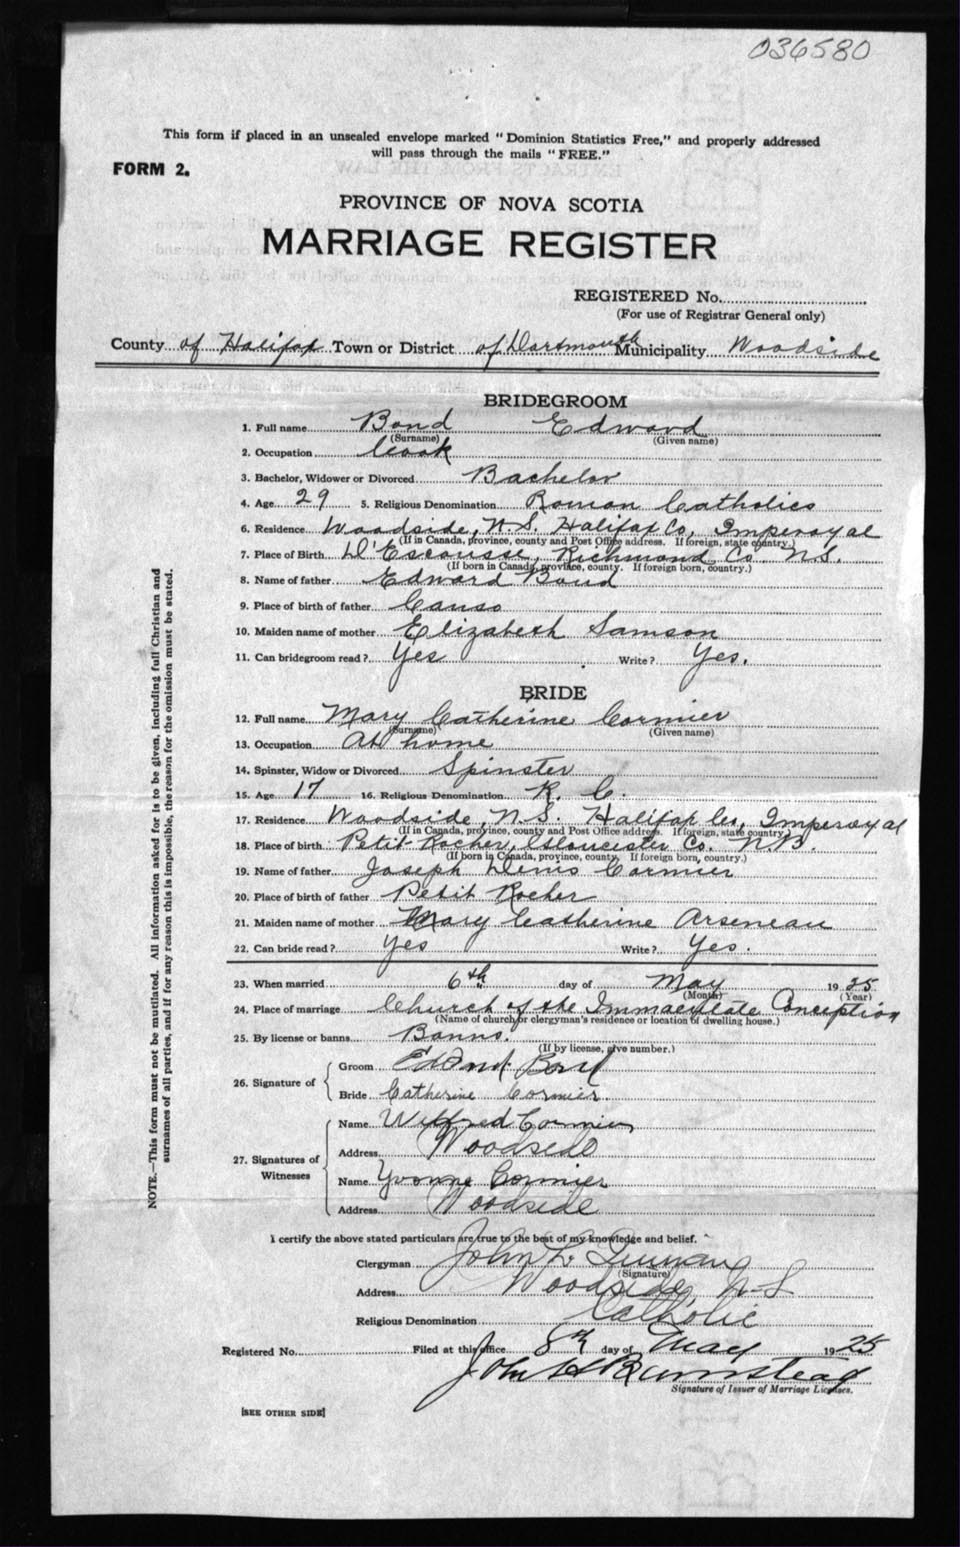 036580
This form if placed in an unsealed envelope marked "Dominion Statistics Free," and properly addressed
will pass through the mails "FREE."
FORM 2.
PROVINCE OF NOVA SCOTIA
MARRIAGE REGISTER
REGISTERED No.
(For use of Registrar General only)
County of Halifax Town or District of Dartmouth Municipality Woodside
BRIDEGROOM
1. Full name Bond Edward
(Surname) (Given name)
2. Occupation Cook
3. Bachelor, Widower or Divorced Bachelor
4. Age 29 5. Religious Denomination Roman Catholics
6. Residence Woodside, N.S. Halifax Co, Imperoyal
(If in Canada, province, county and Post Office address. If foreign, state country.)
7. Place of Birth D'Escousse, Richmond Co. N.S.
(If born in Canada, province, county. If foreign born, country.)
8. Name of father Edward Bond
9. Place of birth of father Canso
10. Maiden name of mother Elizabeth Samson
11. Can bridegroom read? Yes Write? Yes.
BRIDE
12. Full name Mary Catherine Cormier
(Surname) (Given name)
13. Occupation At home
14. Spinster, Widow or Divorced Spinster
15. Age 17 16. Religious Denomination R. C.
17. Residence Woodside, N.S. Halifax Co, Imperoyal
(If in Canada, province, county and Post Office address. If foreign, state country.)
18. Place of birth Petit-Rocher, Gloucester Co. N.B.
(If born in Canada, province, county. If foreign born, country.)
19. Name of father Joseph Denis Cormier
20. Place of birth of father Petit Rocher
21. Maiden name of mother Mary Catherine Arseneau
22. Can bride read? Yes Write? Yes.
23. When married 6th day of May 1925
(Month) (Year)
24. Place of marriage Church of the Immaculate Conception
(Name of church or clergyman's residence or location of dwelling house.)
25. By license or banns Banns.
(If by license, give number.)
26. Signature of
Groom Edward Bond
Bride Catherine Cormier.
27. Signatures of Witnesses
Name Wilfred Cormier
Address Woodside
Name Yvonne Cormier
Address Woodside
I certify the above stated particulars are true to the best of my knowledge and belief.
Clergyman John L.
(Signature)
Address Woodside, N-S
Religious Denomination Catholic
Registered No. Filed at this office 8th day of May 1925
John H Bumstead
Signature of Issuer of Marriage Licenses.
[SEE OTHER SIDE]
NOTE.—This form must not be mutilated. All information asked for is to be given, including full Christian and
surnames of all parties, and if for any reason this is impossible, the reason for the omission must be stated.